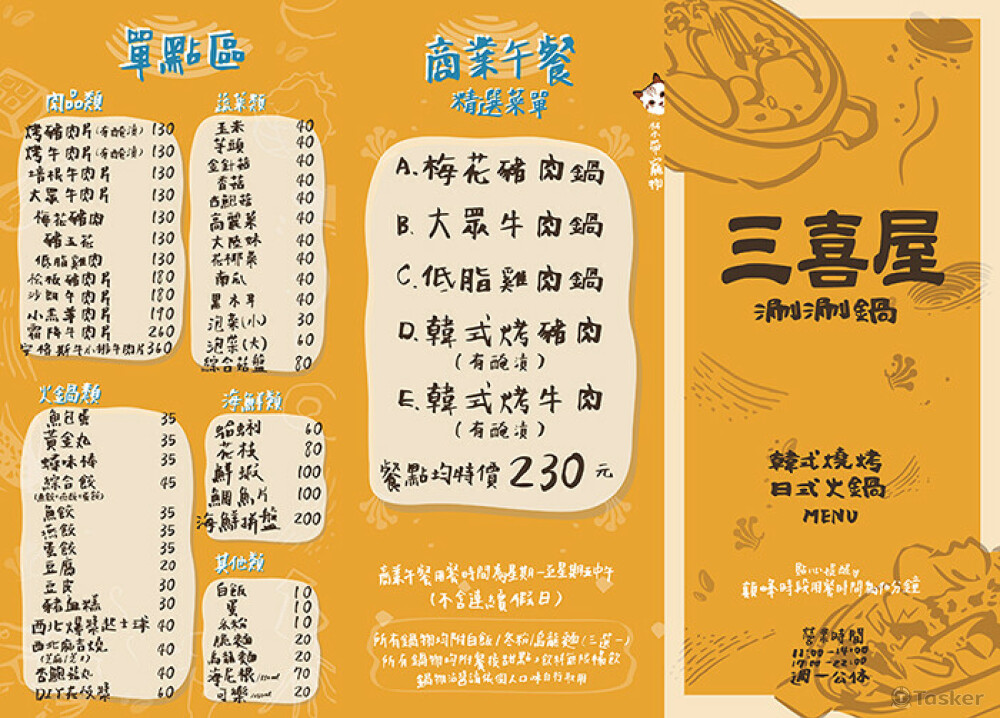 單點區
肉品類
烤豬肉片(有醃漬) 130
烤牛肉片(有醃漬) 130
培根牛肉片 130
大眾牛肉片 130
梅花豬肉 130
豬五花 130
低脂雞肉 130
松板豬肉片 180
沙朗牛肉片 180
小羔羊肉片 190
霜降牛肉片 260
安格斯牛小排牛肉片 360
火鍋類
魚包蛋 35
黃金丸 35
蟳味棒 35
綜合餃 45
魚餃 35
燕餃 35
蛋餃 35
豆腐 20
豆皮 30
豬血糕 30
西北爆漿起士球 40
西北麻吉燒 40
杏鮑菇丸 40
DIY 60
蔬菜類
玉米 40
芋頭 40
金針菇 40
香菇 40
杏鮑菇 40
高麗菜 40
大陸妹 40
花椰菜 40
南瓜 40
黑木耳 40
泡菜(小) 30
泡菜(大) 60
綜合菇盤 80
海鮮類
蛤蜊 60
花枝 80
鮮蝦 100
鯛魚片 100
海鮮拼盤 200
其他類
白飯 10
蛋 10
冬粉 10
脆麵 20
烏龍麵 20
海尼根 70
可樂 20
商業午餐
精選菜單
A.梅花豬肉鍋
B.大眾牛肉鍋
C.低脂雞肉鍋
D.韓式烤豬肉
(有醃漬)
E.韓式烤牛肉
(有醃漬)
餐點均特價230元
商業午餐用餐時間為星期一至星期五中午
(不含連續假日)
所有鍋物均附白飯/冬粉/烏龍麵(三選一)
所有鍋物均附餐後甜點,飲料無限暢飲
鍋物沾醬請依個人口味自行取用
三喜屋
涮涮鍋
韓式燒烤
日式火鍋
MENU
貼心提醒
顛峰時段用餐時間為90分鐘
營業時間
11:00-14:00
17:00-22:00
週一公休
Tasker